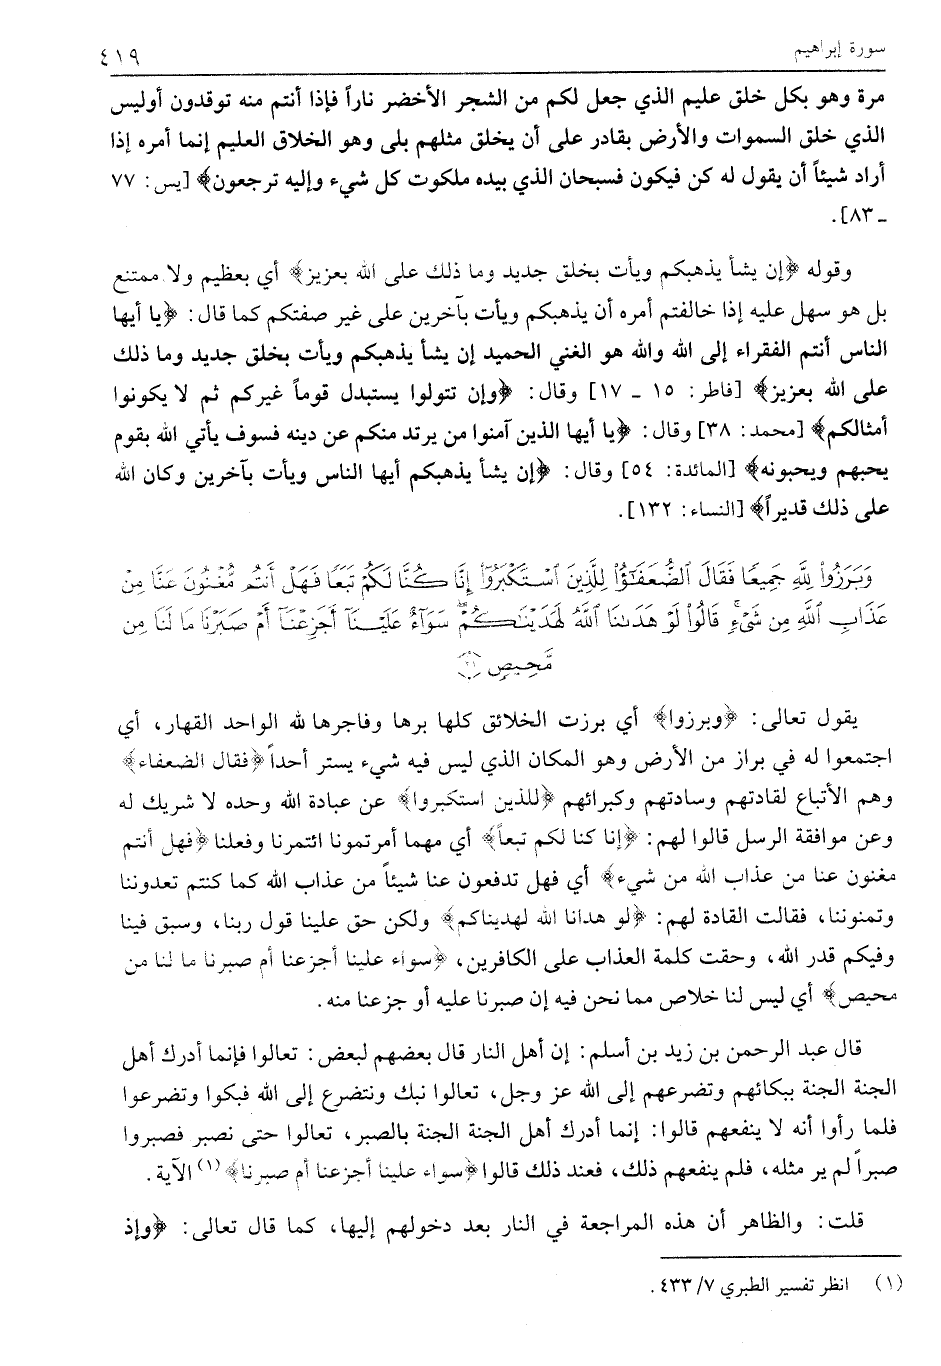 سورة إبراهيم
٤١٩
مرة وهو بكل خلق عليم الذي جعل لكم من الشجر الأخضر ناراً فإذا أنتم منه توقدون أوليس
الذي خلق السموات والأرض بقادر على أن يخلق مثلهم بلى وهو الخلاق العليم إنما أمره إذا
أراد شيئاً أن يقول له كن فيكون فسبحان الذي بيده ملكوت كل شيء وإليه ترجعون﴾ [يس: ٧٧
ـ ٨٣].
وقوله ﴿إن يشأ يذهبكم ويأت بخلق جديد وما ذلك على الله بعزيز﴾ أي بعظيم ولا ممتنع
بل هو سهل عليه إذا خالفتم أمره أن يذهبكم ويأت بآخرين على غير صفتكم كما قال: ﴿يا أيها
الناس أنتم الفقراء إلى الله والله هو الغني الحميد إن يشأ يذهبكم ويأت بخلق جديد وما ذلك
على الله بعزيز﴾ [فاطر: ١٥ ـ ١٧] وقال: ﴿وإن تتولوا يستبدل قوماً غيركم ثم لا يكونوا
أمثالكم﴾ [محمد: ٣٨] وقال: ﴿يا أيها الذين آمنوا من يرتد منكم عن دينه فسوف يأتي الله بقوم
يحبهم ويحبونه﴾ [المائدة: ٥٤] وقال: ﴿إن يشأ يذهبكم أيها الناس ويأت بآخرين وكان الله
على ذلك قديراً﴾ [النساء: ١٣٢].
وَبَرَزُوا۟ لِلَّهِ جَمِيعًا فَقَالَ ٱلضُّعَفَـٰٓؤُا۟ لِلَّذِينَ ٱسْتَكْبَرُوٓا۟ إِنَّا كُنَّا لَكُمْ تَبَعًا فَهَلْ أَنتُم مُّغْنُونَ عَنَّا مِنْ
عَذَابِ ٱللَّهِ مِن شَىْءٍ ۚ قَالُوا۟ لَوْ هَدَىٰنَا ٱللَّهُ لَهَدَيْنَـٰكُمْ ۖ سَوَآءٌ عَلَيْنَآ أَجَزِعْنَآ أَمْ صَبَرْنَا مَا لَنَا مِن
مَّحِيصٍ ﴿٢١﴾
يقول تعالى: ﴿وبرزوا﴾ أي برزت الخلائق كلها برها وفاجرها لله الواحد القهار، أي
اجتمعوا له في براز من الأرض وهو المكان الذي ليس فيه شيء يستر أحداً ﴿فقال الضعفاء﴾
وهم الأتباع لقادتهم وسادتهم وكبرائهم ﴿للذين استكبروا﴾ عن عبادة الله وحده لا شريك له
وعن موافقة الرسل قالوا لهم: ﴿إنا كنا لكم تبعاً﴾ أي مهما أمرتمونا ائتمرنا وفعلنا ﴿فهل أنتم
مغنون عنا من عذاب الله من شيء﴾ أي فهل تدفعون عنا شيئاً من عذاب الله كما كنتم تعدوننا
وتمنوننا، فقالت القادة لهم: ﴿لو هدانا الله لهديناكم﴾ ولكن حق علينا قول ربنا، وسبق فينا
وفيكم قدر الله، وحقت كلمة العذاب على الكافرين، ﴿سواء علينا أجزعنا أم صبرنا ما لنا من
محيص﴾ أي ليس لنا خلاص مما نحن فيه إن صبرنا عليه أو جزعنا منه.
قال عبد الرحمن بن زيد بن أسلم: إن أهل النار قال بعضهم لبعض: تعالوا فإنما أدرك أهل
الجنة الجنة ببكائهم وتضرعهم إلى الله عز وجل، تعالوا نبك ونتضرع إلى الله فبكوا وتضرعوا
فلما رأوا أنه لا ينفعهم قالوا: إنما أدرك أهل الجنة الجنة بالصبر، تعالوا حتى نصبر فصبروا
صبراً لم ير مثله، فلم ينفعهم ذلك، فعند ذلك قالوا ﴿سواء علينا أجزعنا أم صبرنا﴾(١) الآية.
قلت: والظاهر أن هذه المراجعة في النار بعد دخولهم إليها، كما قال تعالى: ﴿وإذ
(١) انظر تفسير الطبري ٧/ ٤٣٣.